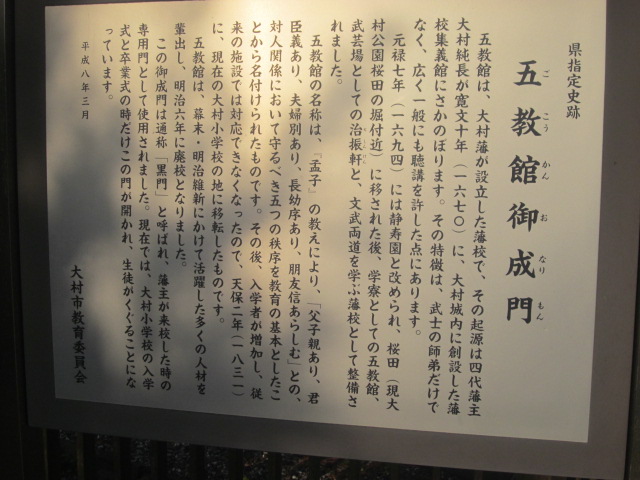 県指定史跡
五教館御成門
ごこうかんおなりもん
五教館は、大村藩が設立した藩校で、その起源は四代藩主
大村純長が寛文十年（一六七〇）に、大村城内に創設した藩
校集義館にさかのぼります。その特徴は、武士の師弟だけで
なく、広く一般にも聴講を許した点にあります。
元禄七年（一六九四）には静寿園と改められ、桜田（現大
村公園桜田の堀付近）に移された後、学寮としての五教館、
武芸場としての治振軒と、文武両道を学ぶ藩校として整備さ
れました。
五教館の名称は、「孟子」の教えにより、「父子親あり、君
臣義あり、夫婦別あり、長幼序あり、朋友信あらしむ」との、
対人関係において守るべき五つの秩序を教育の基本としたこ
とから名付けられたものです。その後、入学者が増加し、従
来の施設では対応できなくなったので、天保二年（一八三一）
に、現在の大村小学校の地に移転したものです。
五教館は、幕末・明治維新にかけて活躍した多くの人材を
輩出し、明治六年に廃校となりました。
この御成門は通称「黒門」と呼ばれ、藩主が来校した時の
専用門として使用されました。現在では、大村小学校の入学
式と卒業式の時だけこの門が開かれ、生徒がくぐることにな
っています。
平成八年三月
大村市教育委員会